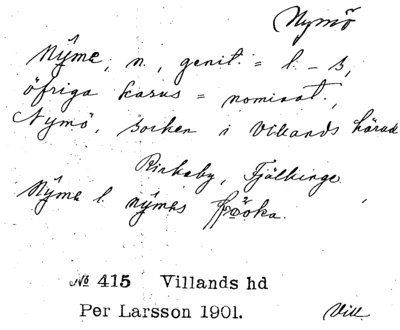 Nymö
Nyme, n., genit. = l. - s,
öfriga kasus = nominat.,
Nymö, socken i Villands härad
Rinkaby, Fjälkinge.
Nyme l. nymes
№ 415 Villands hd
Per Larsson 1901.
Vill.